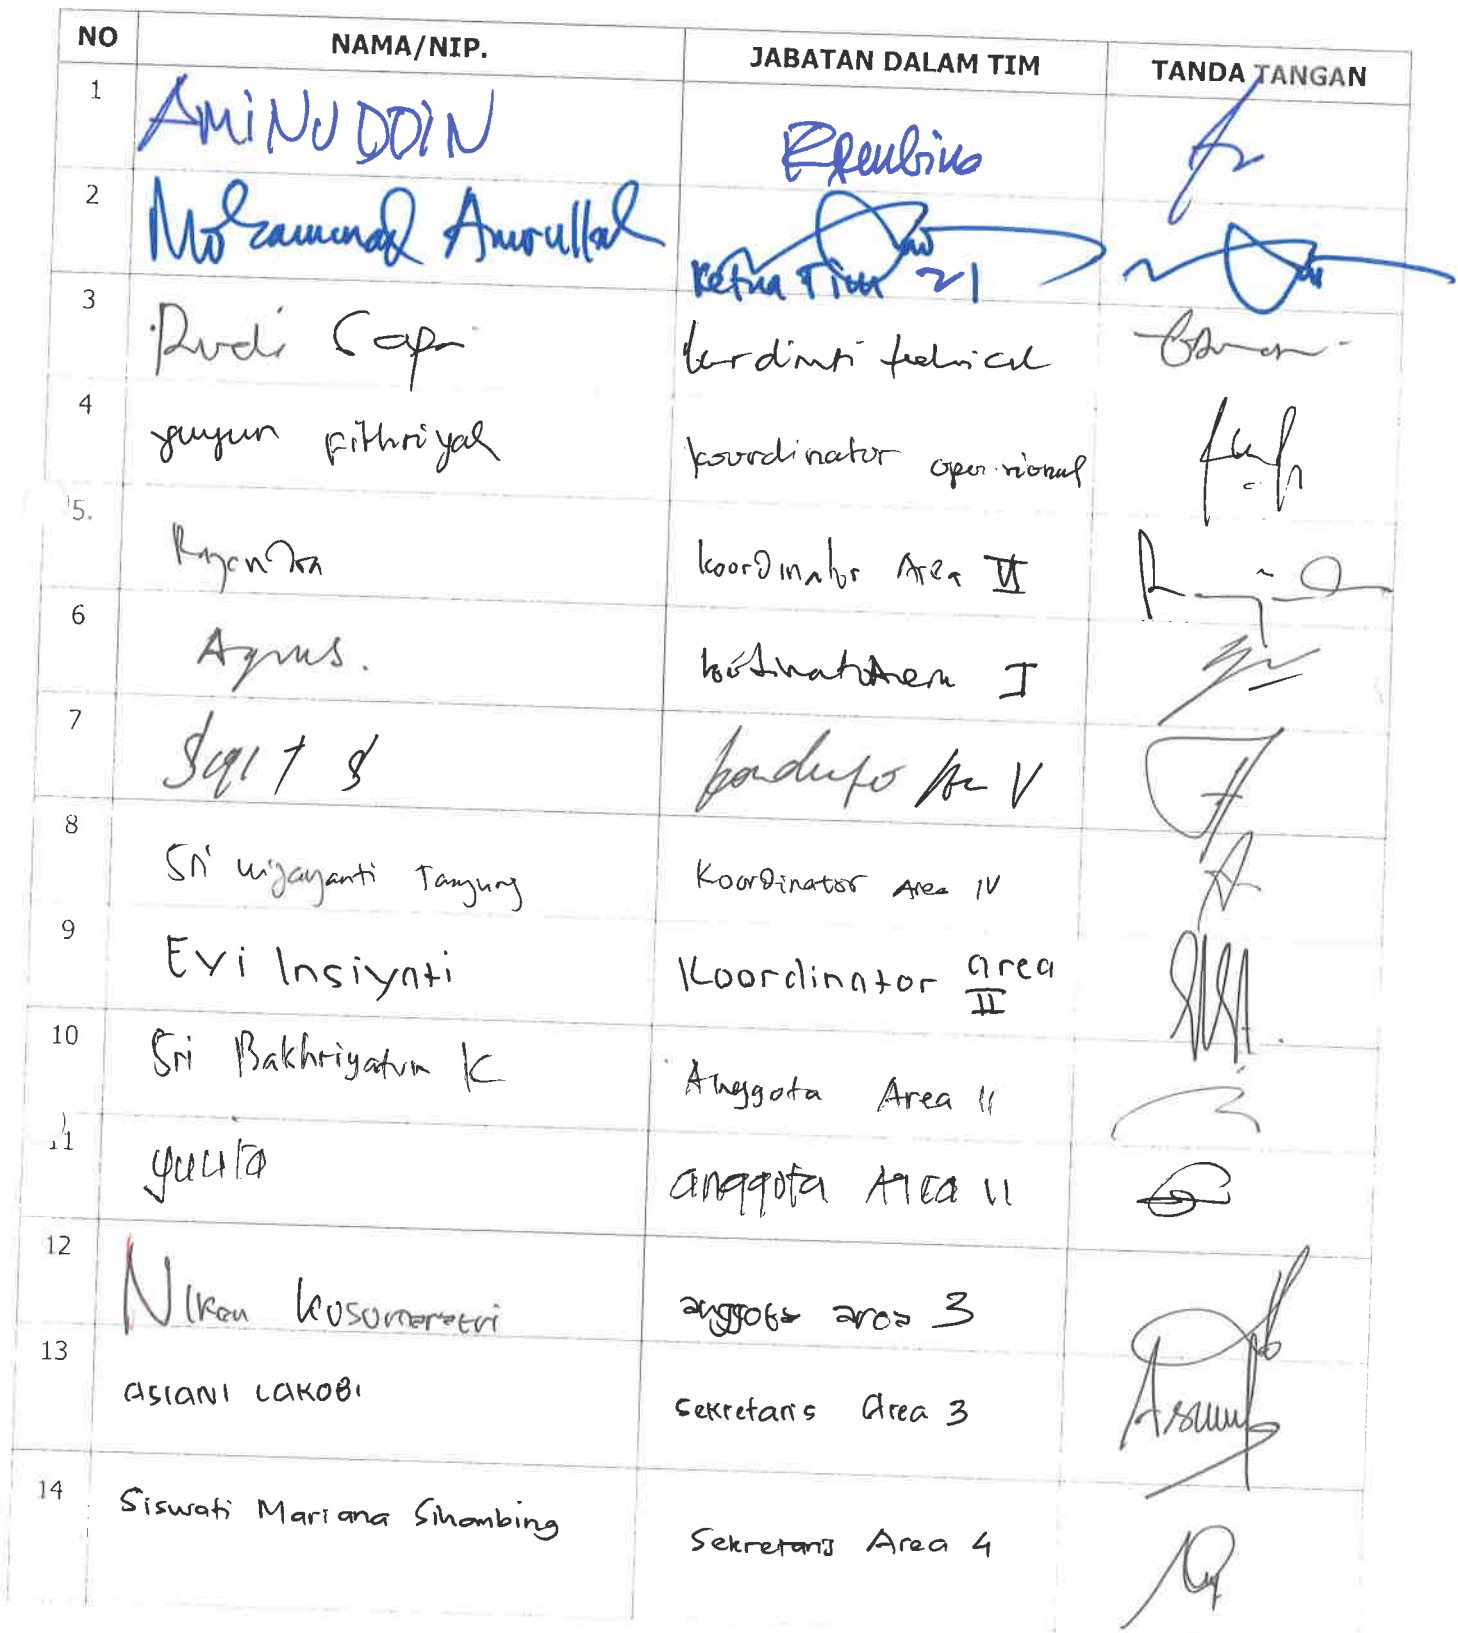 NO NAMA/NIP. JABATAN DALAM TIM TANDA TANGAN
1 AMINUDDIN
2 Mohammad Amrullah Ketua Tim
3 Rudi
4 yuyun fithriyah koordinator operasional
5. Koordinator Area VI
6 Agus. I
7 V
8 Sri wijayanti Tanjung Koordinator Area IV
9 Evi Insiyati Koordinator area II
10 Sri Bakhriyatun K Anggota Area II
11 yulita anggota Area II
12 Niken Kusumaratri anggota area 3
13 ASIANI LAKOBI Sekretaris Area 3
14 Siswati Mariana Sihombing Sekretaris Area 4